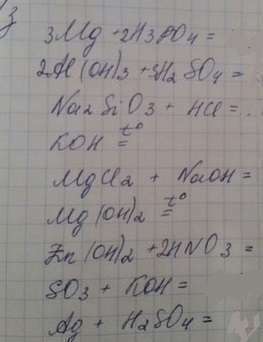 3
3Mg + 2H3PO4 =
2Al(OH)3 + 3H2SO4 =
Na2SiO3 + HCl = ..
KOH t° =
MgCl2 + NaOH =
Mg(OH)2 t° =
Zn(OH)2 + 2HNO3 =
SO3 + KOH =
Ag + H2SO4 =